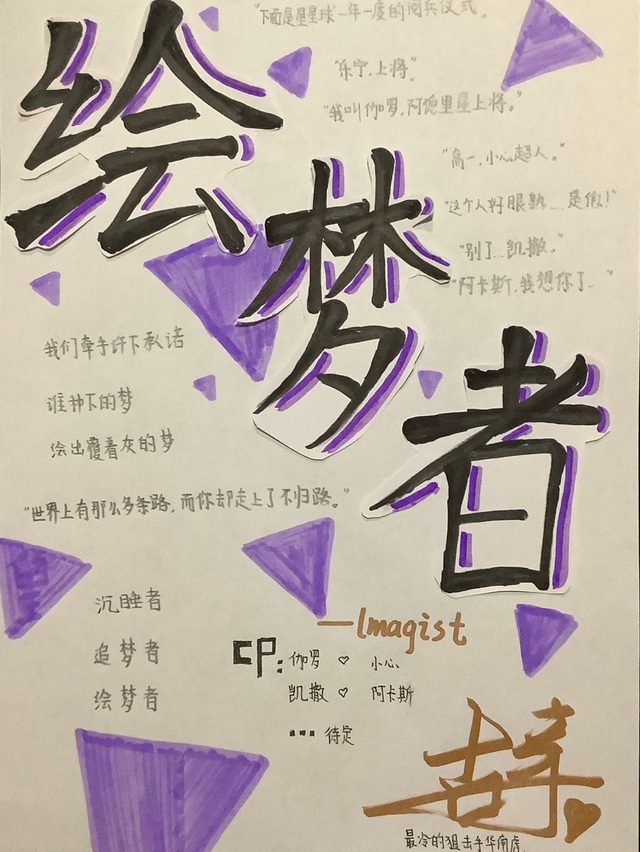 绘梦者
"下面是星星球一年一度的阅兵仪式。
"乐宁上将。"
"我叫伽罗,阿德里星上将。"
"高一,小心超人。"
"这个人好眼熟……是他!"
"别了…凯撒。"
"阿卡斯,我想你了…"
我们牵手许下承诺
谁种下的梦
绘出覆着灰的梦
"世界上有那么多条路,而你却走上了不归路。"
沉睡者
追梦者
绘梦者
—Imagist
CP:
伽罗 ♡ 小心
凯撒 ♡ 阿卡斯
…… 待定
最冷的狙击手华南虎